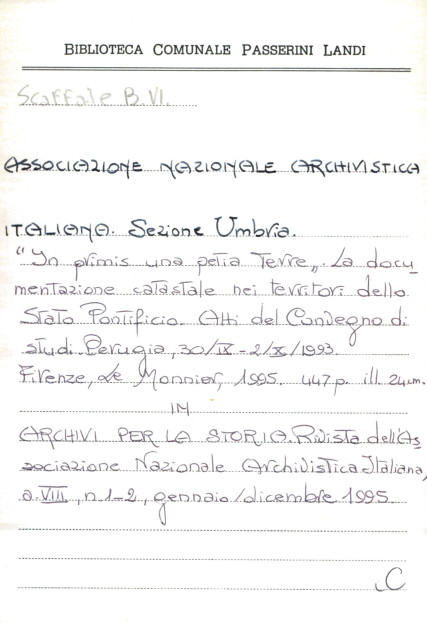 BIBLIOTECA COMUNALE PASSERINI LANDI
Scaffale B.VI.
ASSOCIAZIONE NAZIONALE ARCHIVISTICA
ITALIANA. Sezione Umbria.
"In primis una petia terre„. La docu
mentazione catastale nei territori dello
Stato Pontificio. Atti del Convegno di
studi. Perugia, 30/IX-2/X/1993.
Firenze, Le Monnier, 1995. 447 p. ill. 24 cm.
IN
ARCHIVI PER LA STORIA. Rivista dell'As
sociazione Nazionale Archivistica Italiana,
a. VIII, n. 1-2, gennaio/dicembre 1995.
C